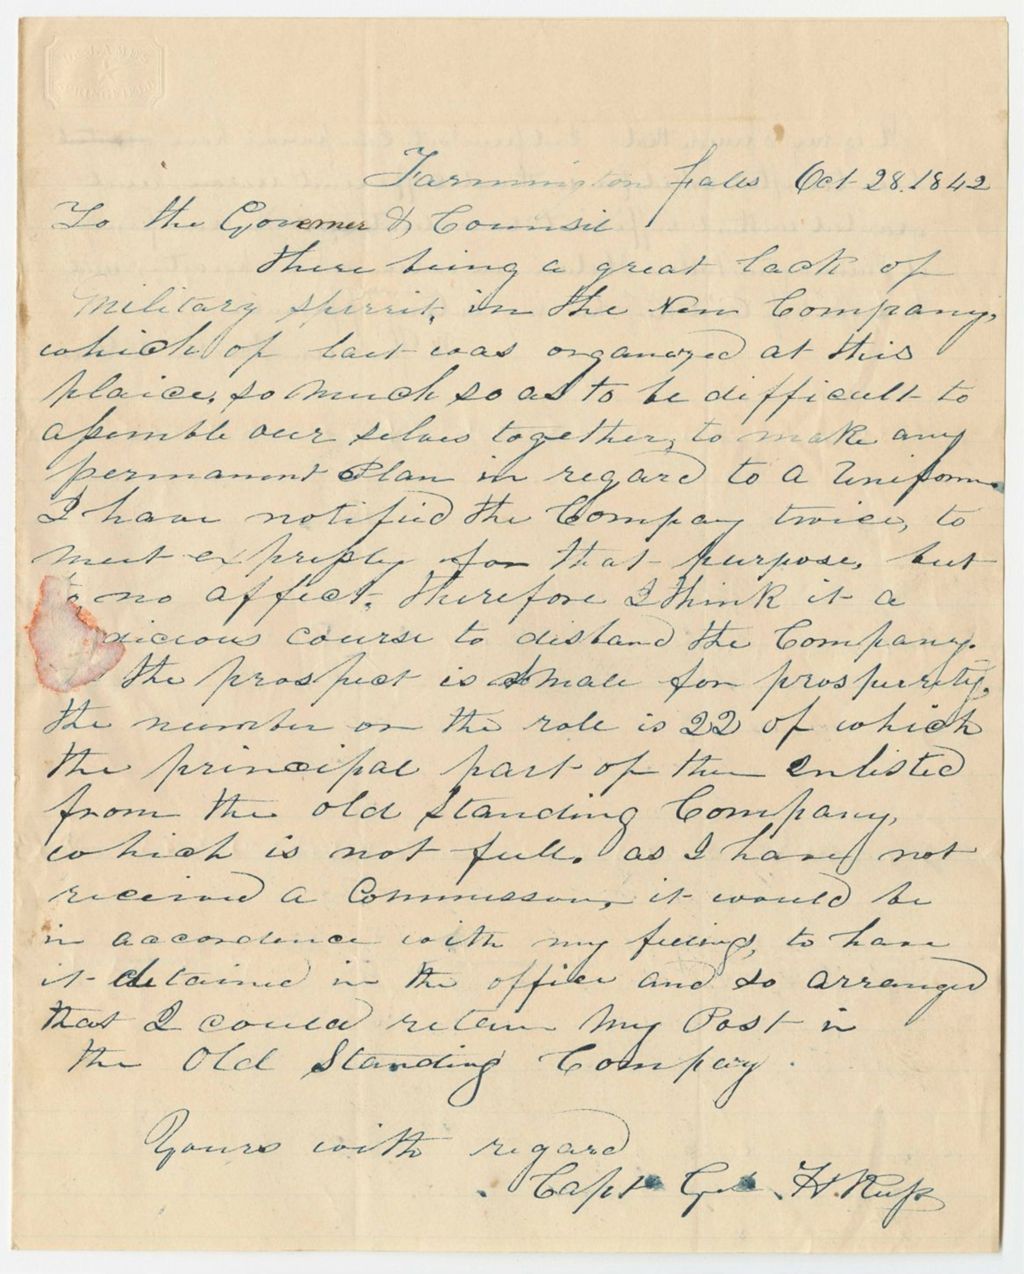 Farmington falls Oct 28. 1842
To the Governer & Counsil
there being a great lack of
Military Spirrit, in the New Company,
which of last was organized at this
plaice, so much so as to be difficult to
assemble our selves together, to make any
permanent Plan in regard to a Uniform.
I have notified the Company twice, to
meet expressly for that purpose, but
to no affect. therefore I think it a
dicious course to disband the Company.
the prospect is smale for prosperrity.
the number on the role is 22 of which
the principal part of them enlisted
from the old Standing Company,
which is not full. as I have not
received a Commisson, it would be
in accordence with my feelings, to have
it detained in the office and so arranged
that I could retain My Post in
the Old Standing Company.
Yours with regard
Capt Geo. H Russ